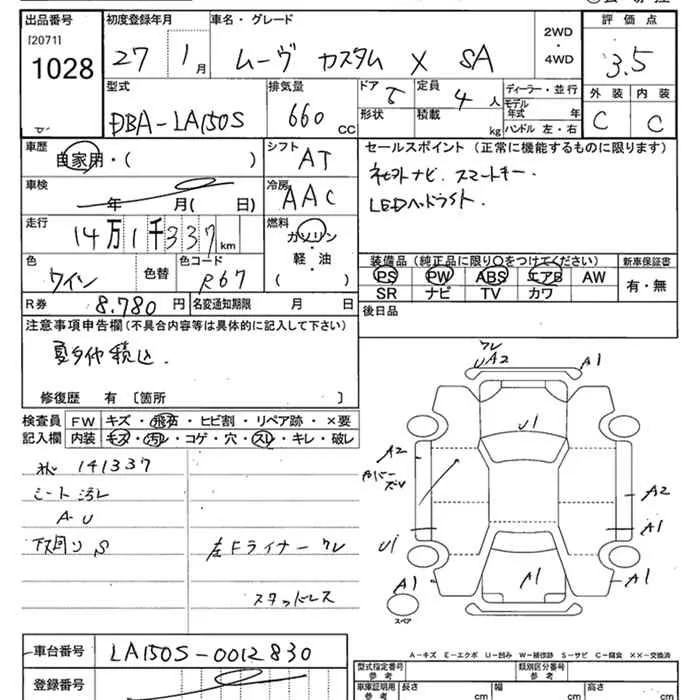 出品番号 初度登録年月 車名・グレード 2WD ・ 4WD 評価点
[2071]
1028 27 1月 ムーヴ カスタム X SA 3.5
外装 内装
C C
型式 排気量 ドア 定員 ディーラー・並行
DBA-LA150S 660 CC 5 4人 モデル年式 年
形状 積載 kg ハンドル 左・右
車歴 自家用・( ) シフト AT
セールスポイント (正常に機能するものに限ります)
車検 年 月( 日) 冷房 AAC
ナビ、スマートキー、
LEDヘッドライト.
走行 14万1千337km
燃料 ガソリン・軽・油 ( )
色 ワイン 色替 色コード R67
装備品(純正品に限り○をつけてください) 新車保証書
PS PW ABS エアB AW 有・無
SR ナビ TV カワ
R券 8.780円 名変通知期限 月 日
後日品
注意事項申告欄(不具合内容等は具体的に記入して下さい)
夏タイヤ積込.
修復歴 有 [箇所 ]
検査員記入欄 FW キズ・飛石・ヒビ割・リペア跡・×要
内装 キズ・汚レ・コゲ・穴・スレ・キレ・破レ
141337
シート汚レ
A-U
下回り S
左Fライナークレ
スタッドレス
クレ
UA2 A1
U1
A2
A2
A1
U1
A1 A1 A1
スペア
A-キズ E-エクボ U-凹み W-補修跡 S-サビ C-腐食 XX-交換済
車台番号 LA150S-0012830
登録番号
型式指定番号 参考 類別区分番号 参考
車庫証明用 参考 長さ cm 幅 cm 高さ cm